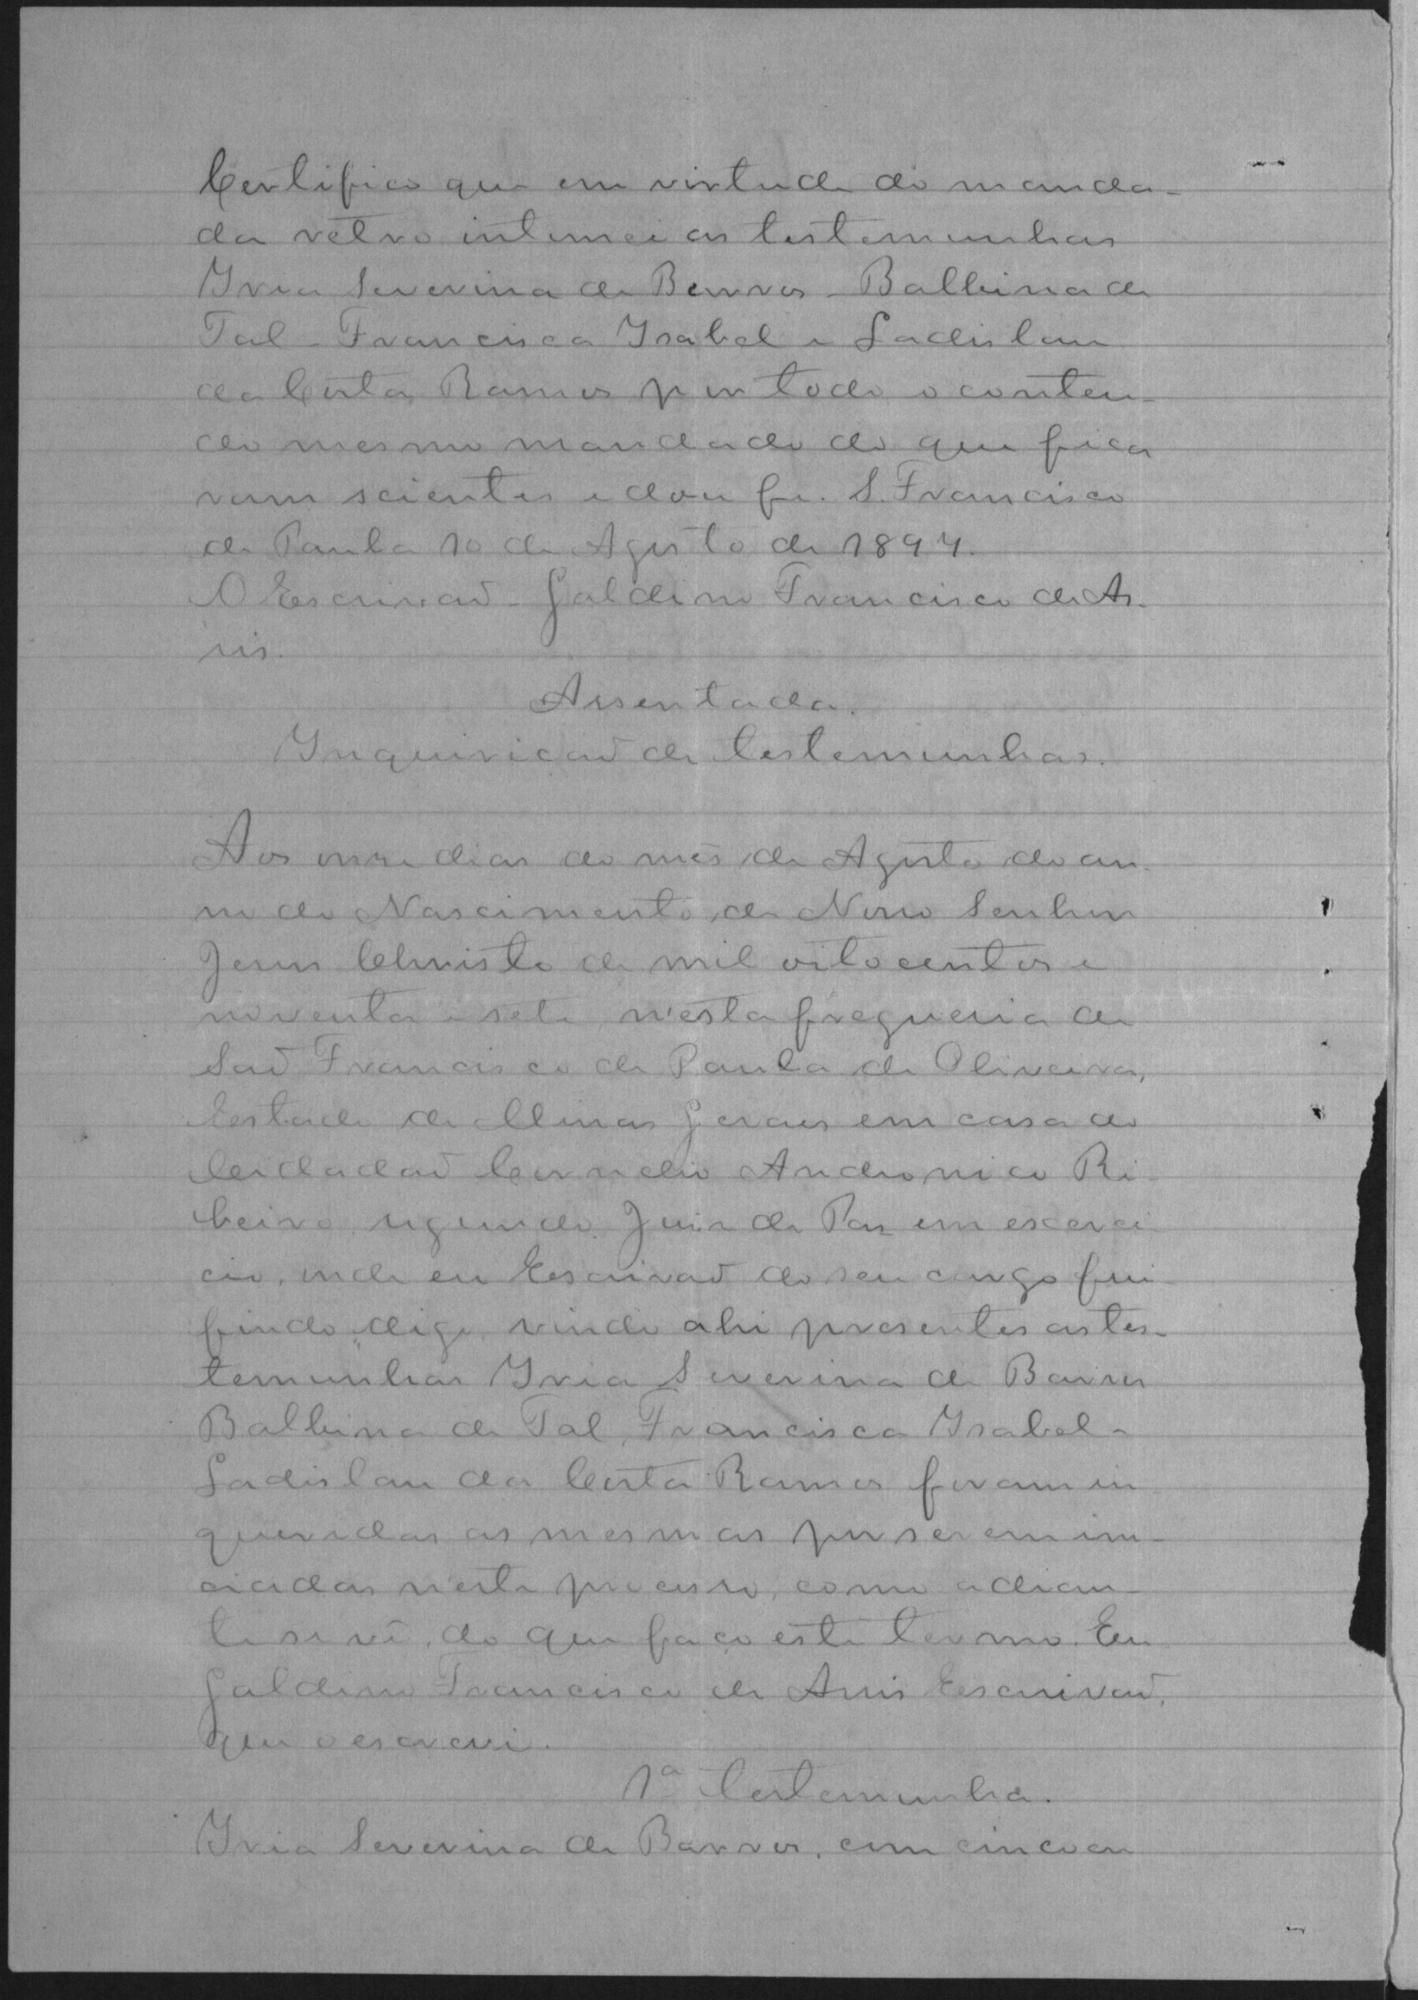 Certifico que em virtude do manda-
da retro intimei as testemunhas
Iria Severina de Barros - Balbina de
Tal - Francisca Isabel e Ladislau
da Costa Ramos por todo o conteu-
do mesmo mandado do que fica
ram scientes e dou fé. S. Francisco
de Paula 10 de Agosto de 1897.
O Escrivaõ - Galdino Francisco de As-
sis.
Assentada.
Inquiricaõ de testemunhas.
Aos onze dias do mês de Agosto do an-
no do Nascimento de Nosso Senhor
Jesus Christo de mil oitocentos e
noventa e sete, n'esta freguesia de
Saõ Francisco de Paula de Oliveira,
Estado de Minas Geraes em casa do
Cidadaõ Cornelio Andronico Ri-
beiro, segundo Juiz de Paz em exerci-
cio, onde eu Escrivaõ do seu cargo fui
findo, digo, vindo ahi presentes as tes-
temunhas Iria Severina de Barros
Balbina de Tal, Francisca Isabel e
Ladislau da Costa Ramos foram in
queridas as mesmas por serem ini-
ciadas n'este processo, como adian-
te se vê, do que faço este termo. Eu
Galdino Francisco de Assis Escrivaõ,
que o escrevi.
1ª Testemunha.
Iria Severina de Barros, com cincoen